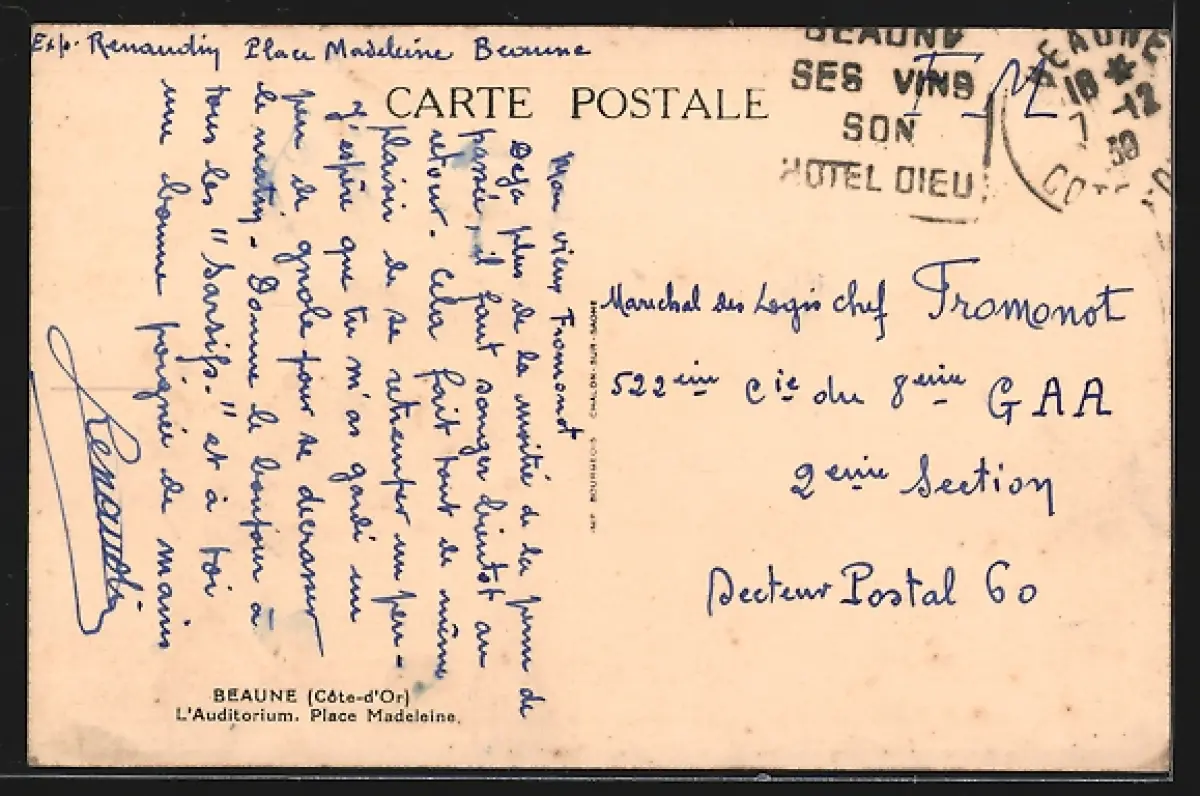 Exp. Renaudin Place Madeleine Beaune
CARTE POSTALE
BEAUNE
SES VINS
SON
HOTEL DIEU
F M
BEAUNE
18 *
7 -12
39
COTE D'OR
Mon vieux Fromonot
Deja plus de la moitié de la perm de
passée, il faut songer bientot au
retour. Cela fait tout de même
plaisir de se retremper un peu -
J'espère que tu m'as gardé un
peu de gnole pour se decrasser
le matin - Donne le bonjour à
tous les "Sarsifs." et à toi
une bonne poignée de mains
Renaudin
Marechal des Logis chef Fromonot
522eme Cie du 8eme GAA
2eme Section
Secteur Postal 60
IMP. BOURGEOIS CHALON-SUR-SAONE
BEAUNE (Côte-d'Or)
L'Auditorium. Place Madeleine.